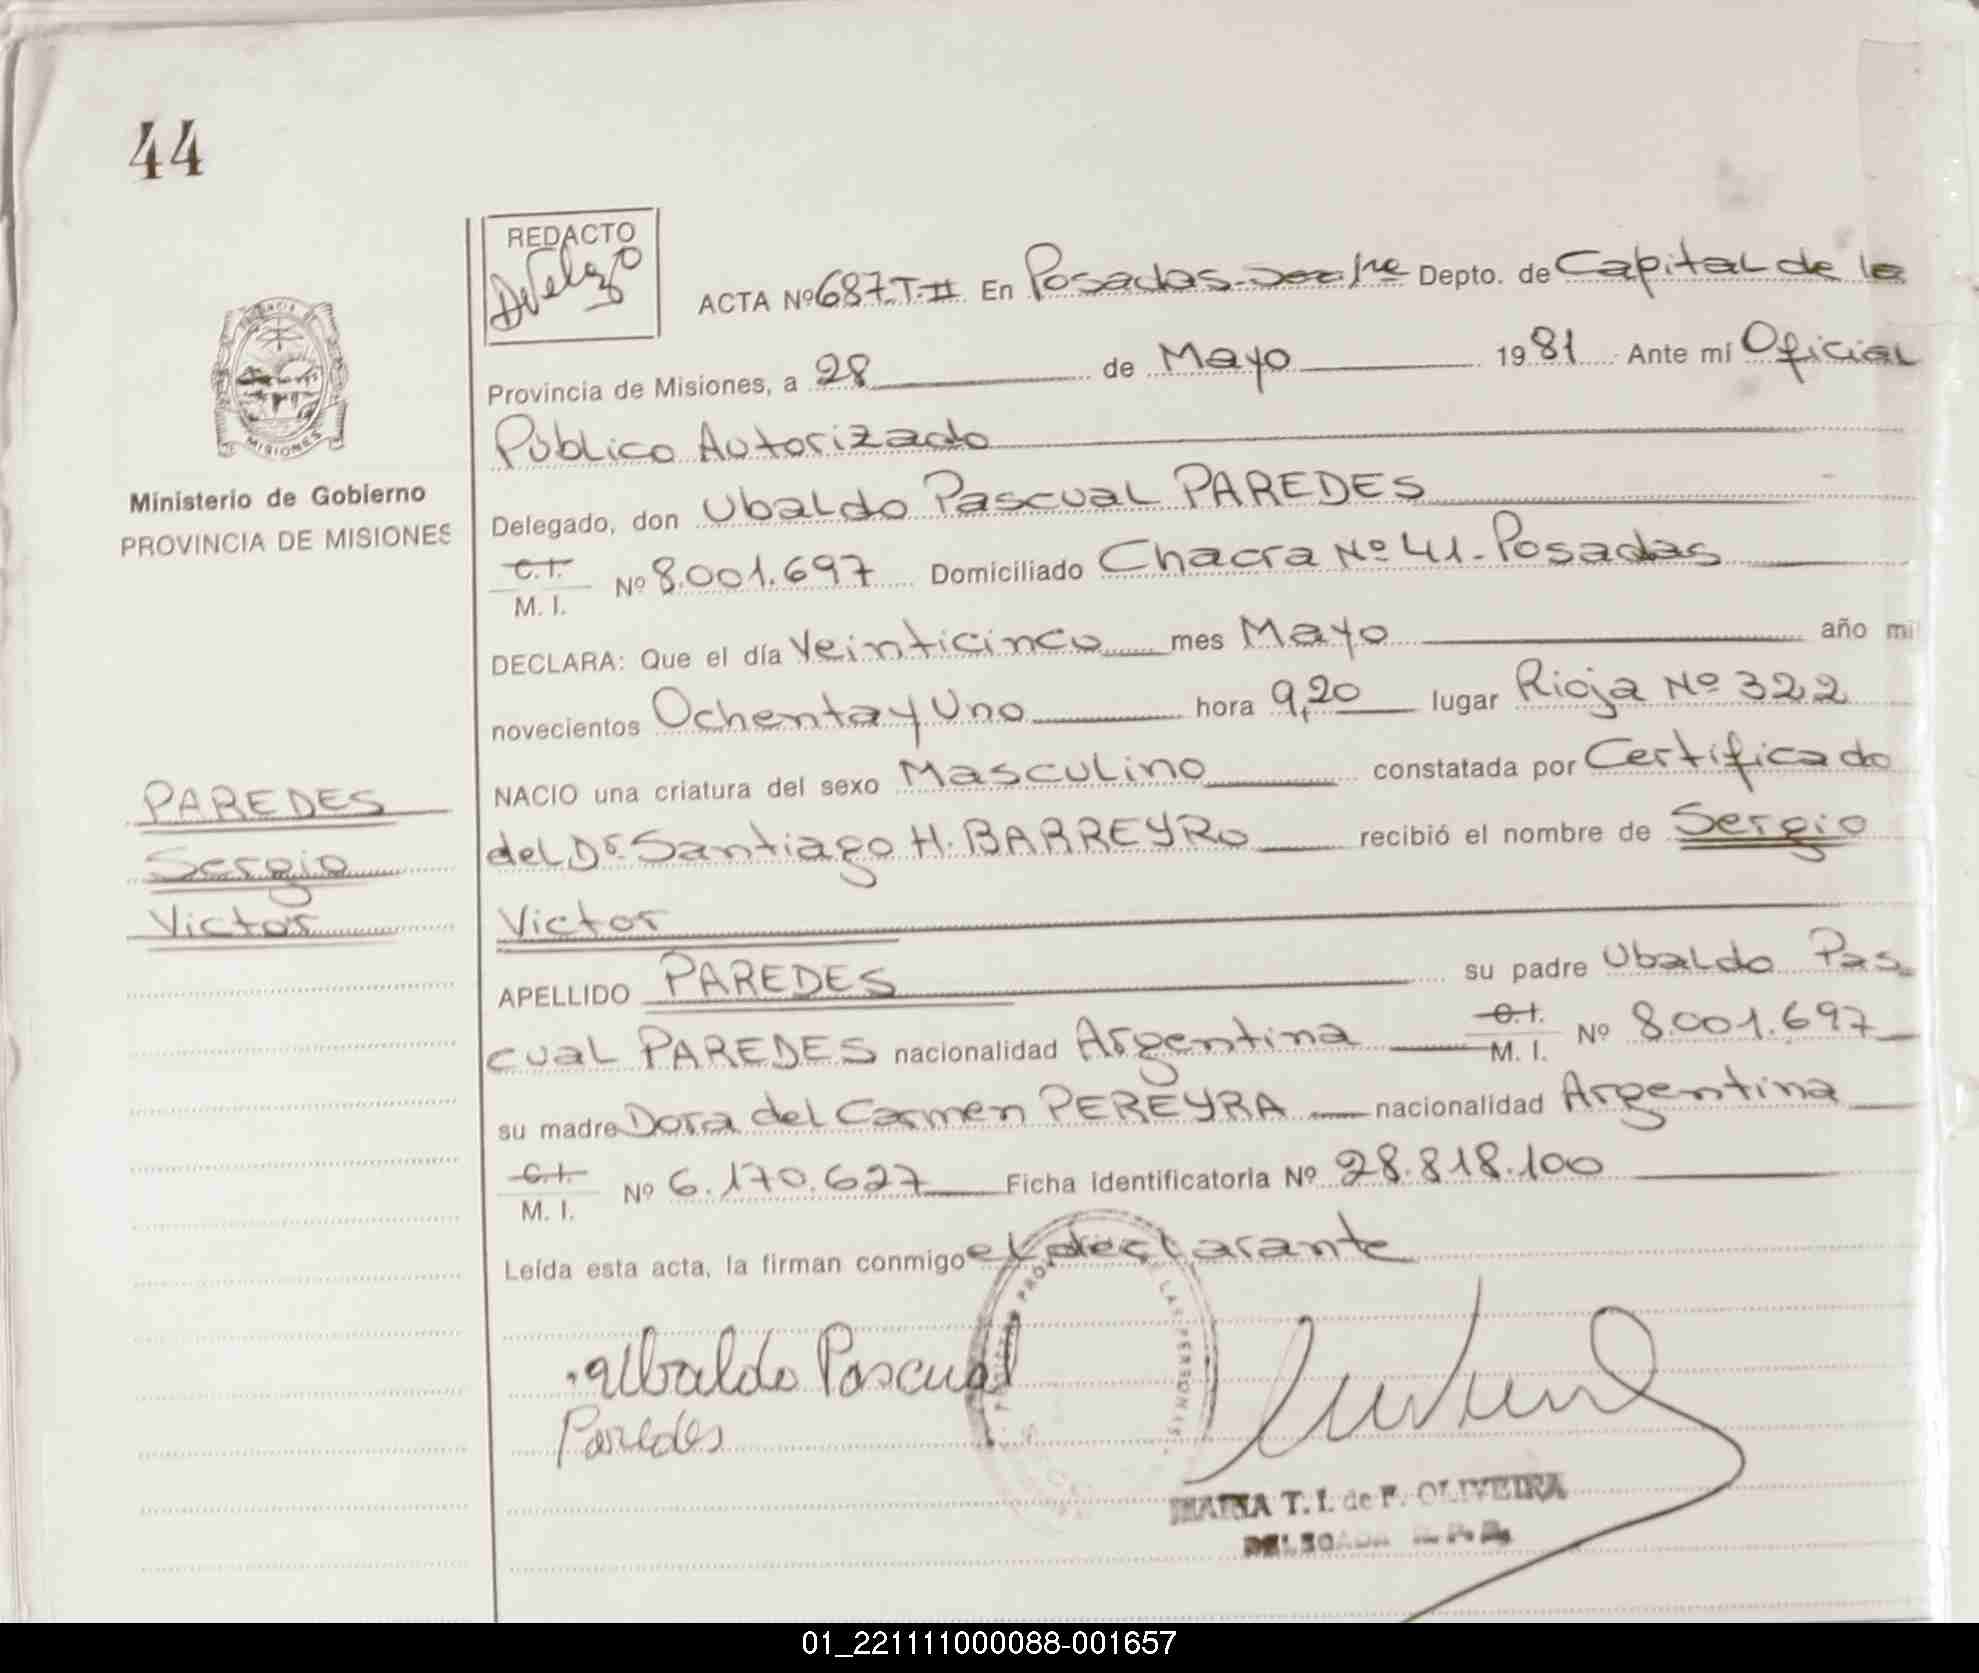 44
REDACTO
ACTA Nº 687 T-II En Posadas Depto. de Capital de la
Provincia de Misiones, a 28 de Mayo 1981 Ante mí Oficial
Público Autorizado
Delegado, don Ubaldo Pascual PAREDES
C.I.
M. I. Nº 8.001.697 Domiciliado Chacra Nº 41-Posadas
DECLARA: Que el día Veinticinco mes Mayo año mil
novecientos Ochenta y Uno hora 9,20 lugar Rioja Nº 322
NACIO una criatura del sexo Masculino constatada por Certificado
del Dr. Santiago H. BARREYRO recibió el nombre de Sergio
Victor
APELLIDO PAREDES su padre Ubaldo Pas-
cual PAREDES nacionalidad Argentina C.I. M. I. Nº 8.001.697
su madre Dora del Carmen PEREYRA nacionalidad Argentina
C.I.
M. I. Nº 6.170.627 Ficha identificatoria Nº 28.818.100
Leída esta acta, la firman conmigo el declarante
Ubaldo Pascual
Paredes
MARIA T. I. de F. OLIVEIRA
DELEGADA R. P. P.
MISIONES
Ministerio de Gobierno
PROVINCIA DE MISIONES
PAREDES
Sergio
Victor
01_221111000088-001657